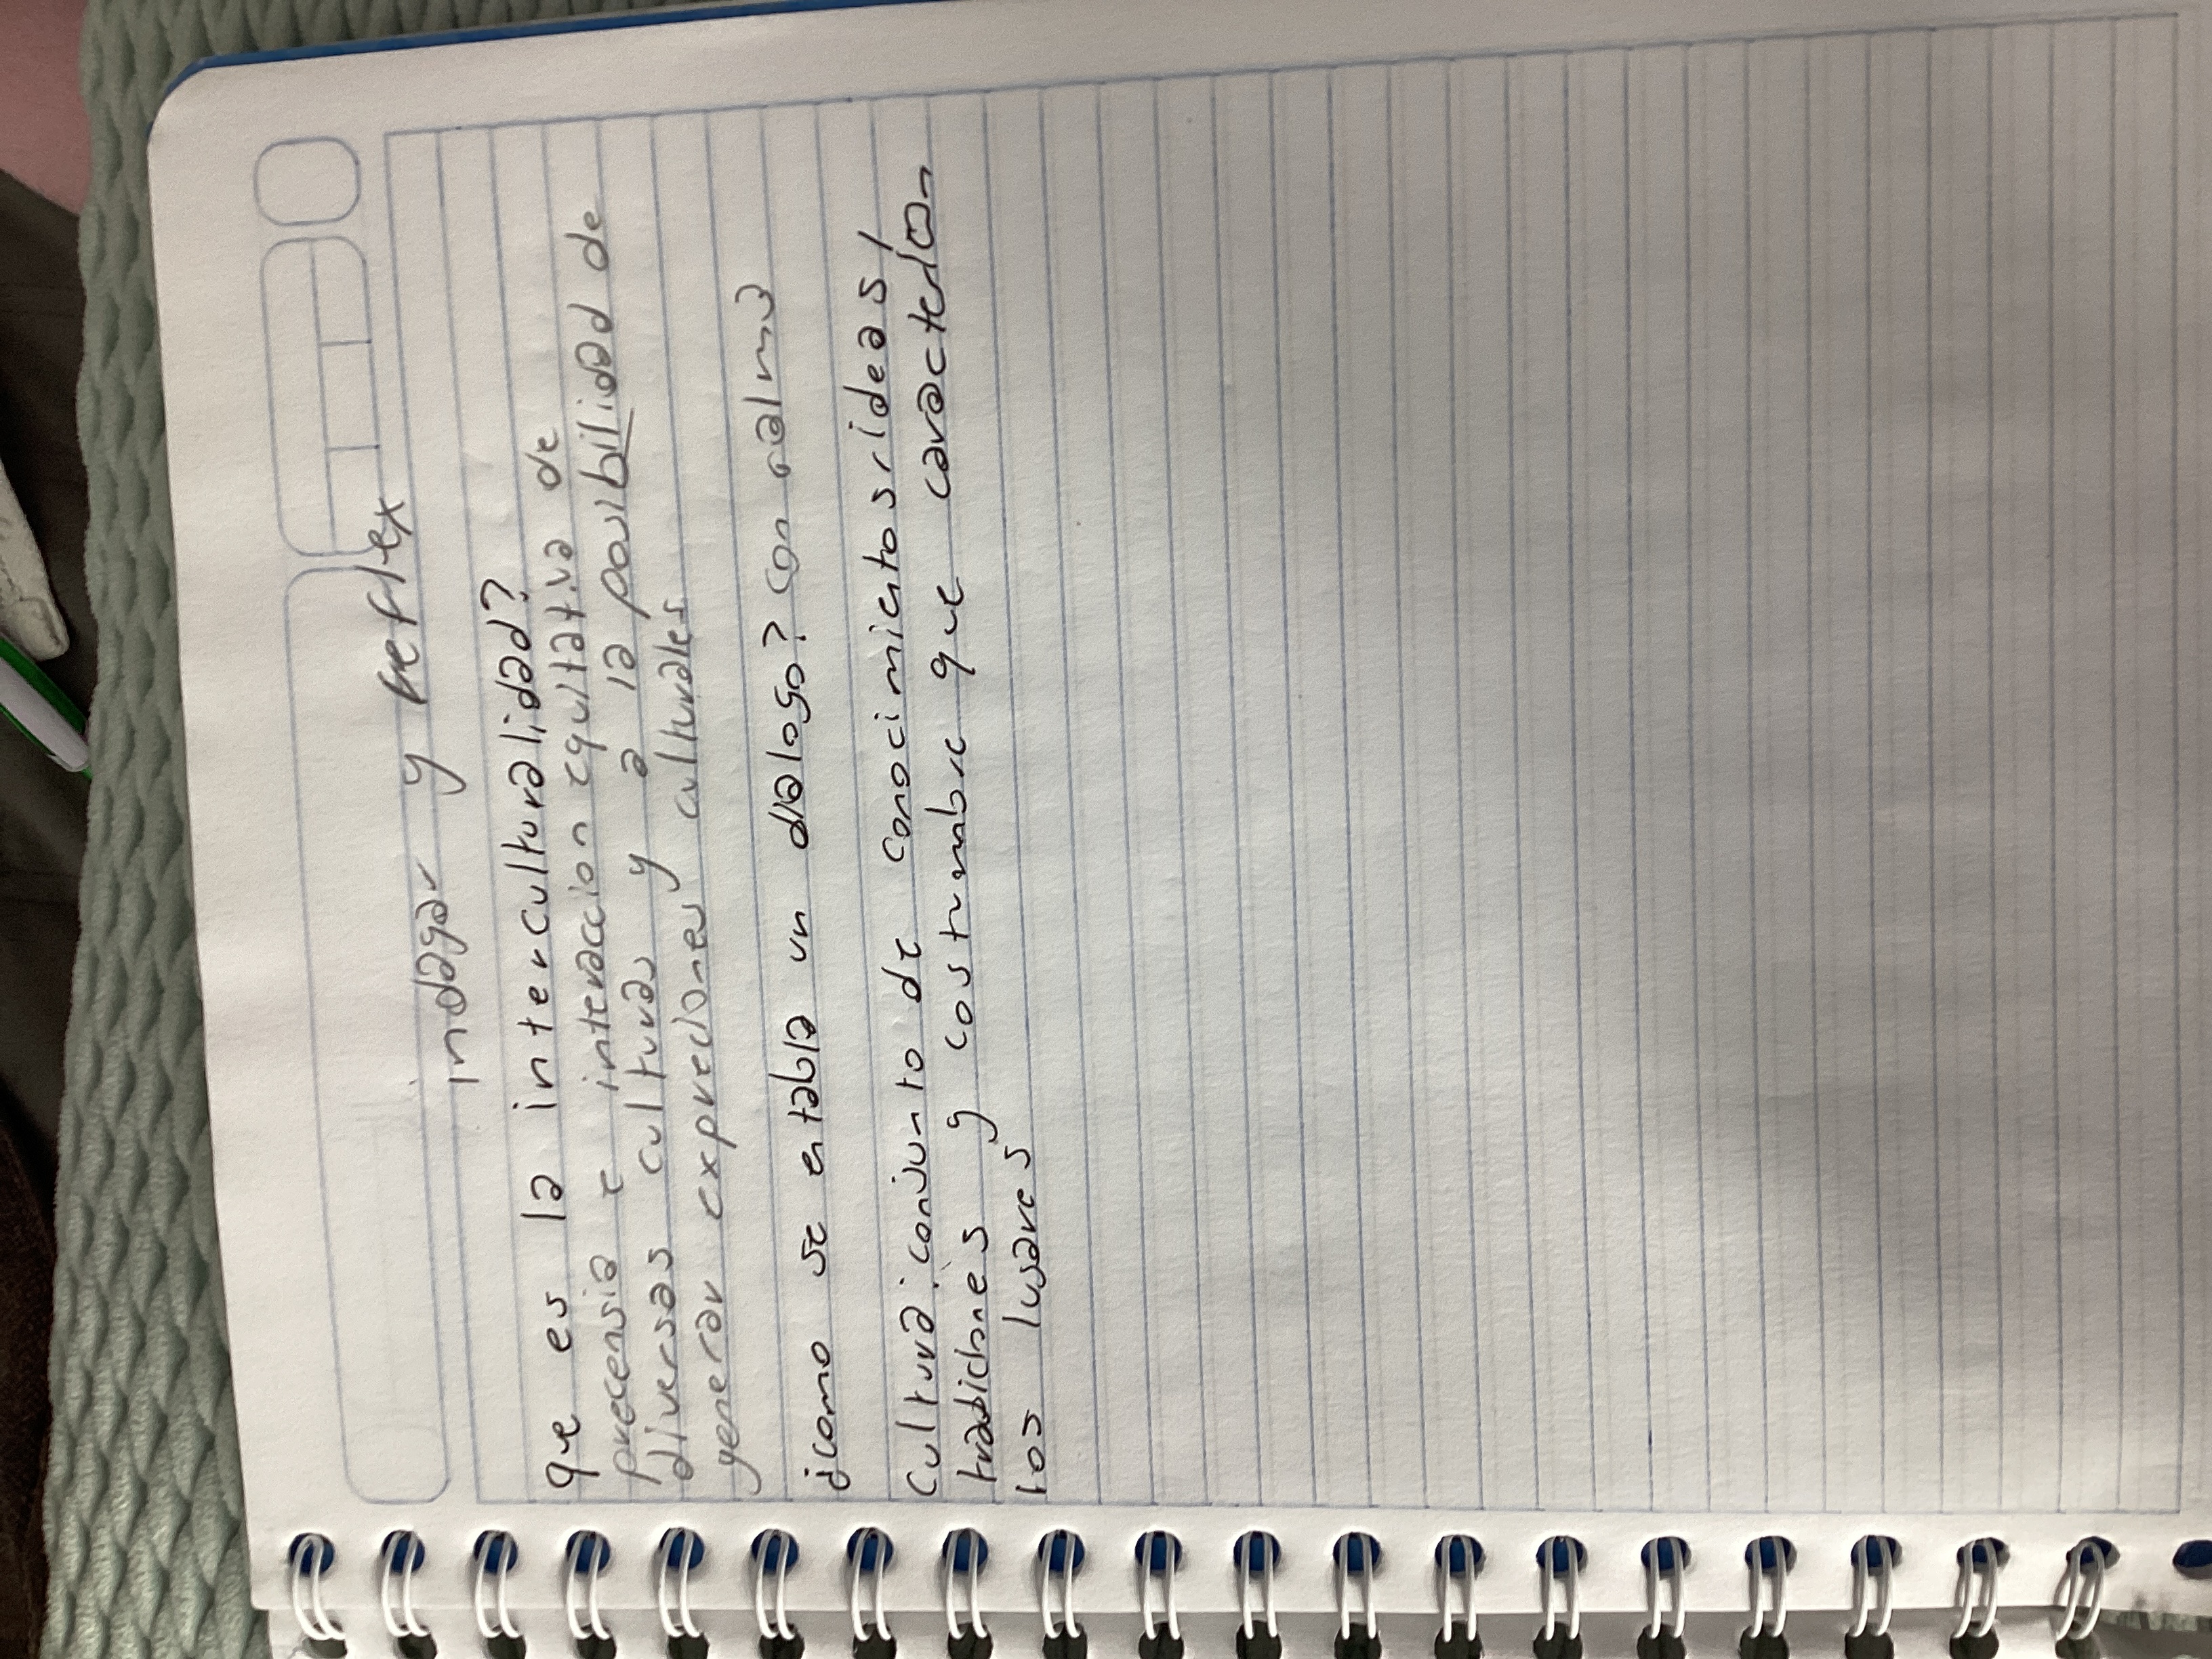 indagar y reflex
que es la interculturalidad?
precensia e interaccion equitativa de
diversas culturas y a la posibilidad de
generar expreciones culturales
¿como se entabla un dialogo? con calma
Cultura: conjunto de conocimientos, ideas,
tradiciones y costumbre que caracterizan
los lugares